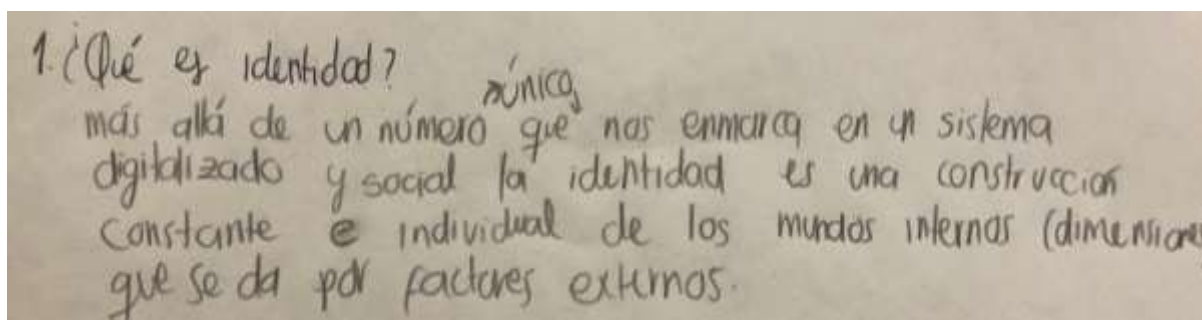 1. ¿Qué es identidad?
única
más allá de un número que nos enmarca en un sistema
digitalizado y social la identidad es una construcción
constante e individual de los mundos internos (dimensiones
que se da por factores externos.